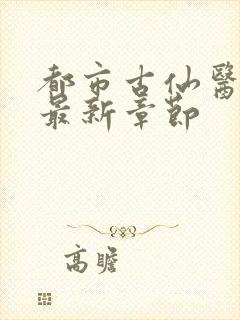 都市古仙醫
最新章節
高瞻